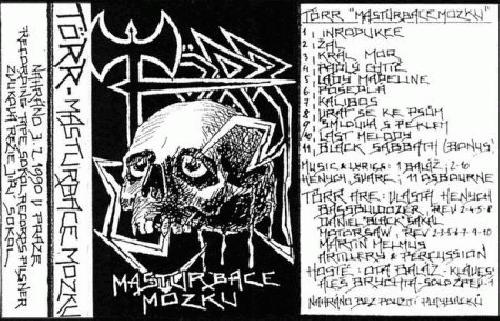 NAHRÁNO 3.2.1990 V PRAZE
RECORDING TAPE SOKOL RECORDS PILSNER
ZVUKOVÁ REŽIE JAR. SOKOL
TÖRR-MASTURBACE MOZKU
TÖRR
MASTURBACE
MOZKU
TÖRR "MASTURBACE MOZKU"
1, INRODUKCE
2, ŽAL
3, KRÁL MOR
4, PADLÝ CHTÍČ
5, LADY MADELINE
6, POSEDLÁ
7, KALIBOS
8, VRAŤ SE KE PSŮM
9, SMLOUVA S PEKLEM
10, LAST MELODY
11, BLACK SABBATH (BONUS)
MUSIC & LYRICS: 1 BALÁŽ; 2-10
HENYCH, ŠVARC; 11 OSBOURNE
TÖRR ARE: VLASTA HENYCH
BASSBULDOZER, REV 2-4-5-8
DANIEL "BLACK" SAKAL
MOTORSAW, REV 2-3-5-6-7-9-10
MARTIN MELMUS
ARTILLERY & PERCUSSION
HOSTÉ: OTA BALÁŽ - KLÁVESY
ALEŠ BRYCHTA - SÓLO ZPĚV
NAHRÁNO BEZ POUŽITÍ PLAYBACKŮ